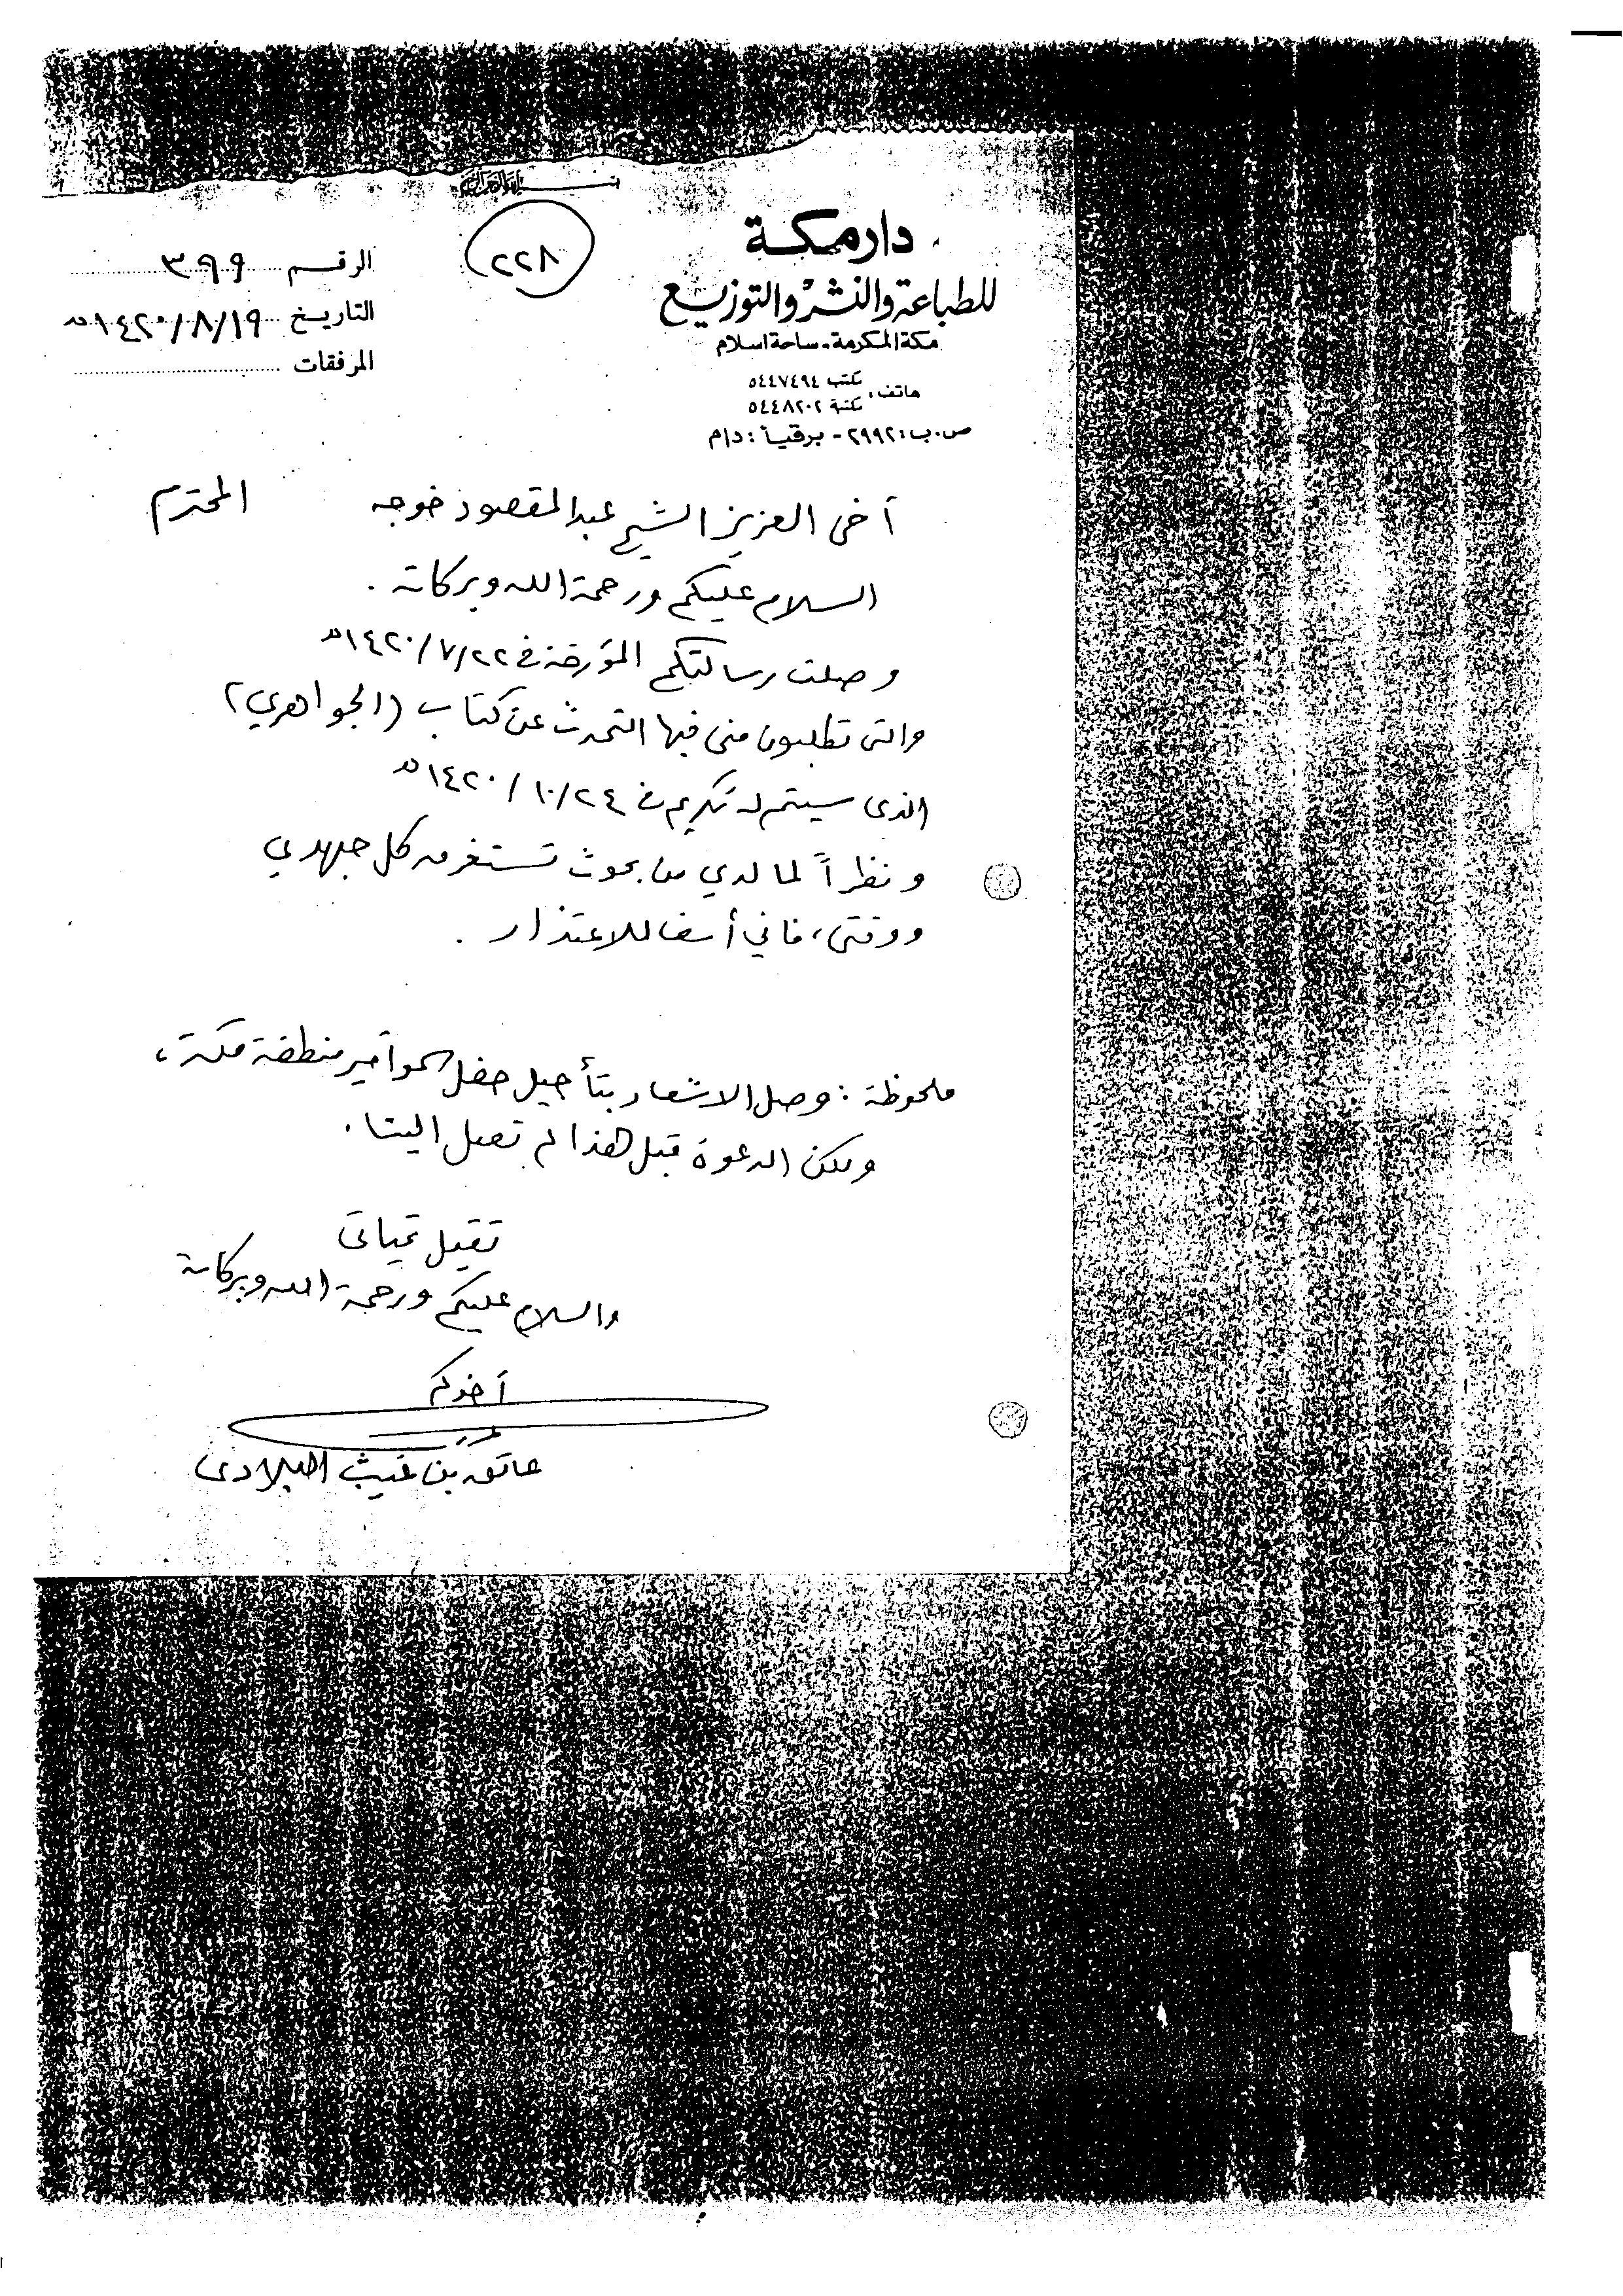 بسم الله الرحمن الرحيم
دار مكة
للطباعة والنشر والتوزيع
مكة المكرمة - ساحة اسلام
هاتف: مكتب ٥٤٤٧٤٩٤
مكتبة ٥٤٤٨٢٠٢
ص.ب: ٢٩٩٢ - برقياً: دام
٢٢٨
الرقم ٣٩٩
التاريخ ١٤٢٠/٨/١٩هـ
المرفقات
أخي العزيز الشيخ عبد المقصود خوجه المحترم
السلام عليكم ورحمة الله وبركاته .
وصلت رسالتكم المؤرخة في ١٤٢٠/٧/٢٢هـ
والتي تطلبون مني فيها التحدث عن كتاب (الجواهري)
الذي سيتم له تكريم في ١٤٢٠/١٠/٢٤هـ
ونظراً لما لدي من بحوث تستغرق كل جهدي
ووقتي، فاني أسف للاعتذار .
ملحوظة : وصل الاشعار بتأجيل حفل سمو أمير منطقة مكة ،
ولكن الدعوة قبل هذا لم تصل الينا .
تقبل تحياتي
والسلام عليكم ورحمة الله وبركاته
أخوكم
عاتق بن غيث البلادي